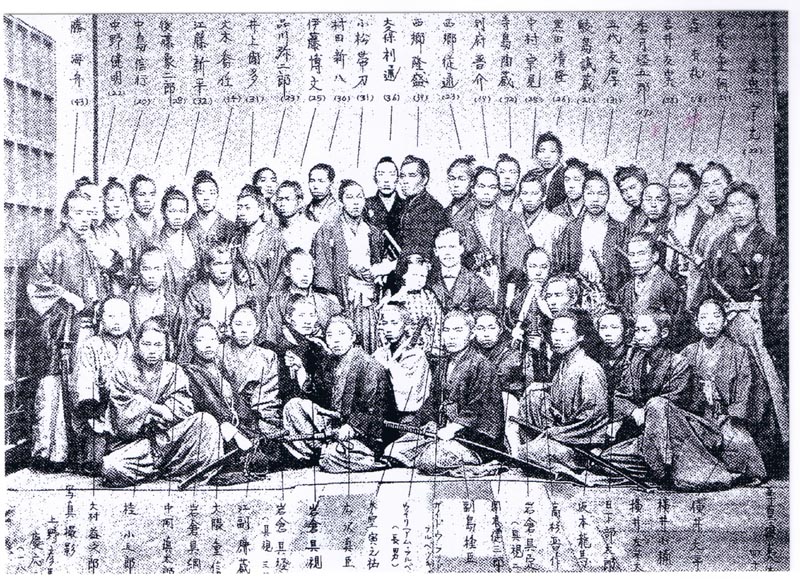 森有礼(18)
吉井友実(38)
五代友厚(31)
鮫島誠蔵(21)
黒田清隆(26)
中村宗見(25)
寺島陶蔵
別府晋介(19)
西郷従通(23)
西郷隆盛(39)
大保利通(36)
小松帯刀(31)
村田新八(30)
伊藤博文(25)
品川弥二郎(23)
井上聞多(31)
大木喬任(34)
江藤新平(32)
後藤象二郎(28)
中島信行(20)
中野健明(22)
勝海舟(43)
横井太平
横井小楠
横井左平太
日下部太郎
坂本龍馬
高杉晋作
岩倉具定
(具視二
岡本健三郎
副島種臣
(長男)
広沢真臣
岩倉具視
岩倉具経
(具視三
江副廉蔵
大隈重信
岩倉具綱
中岡慎太郎
桂小五郎
大村益次郎
写真撮影
上野彦
慶応